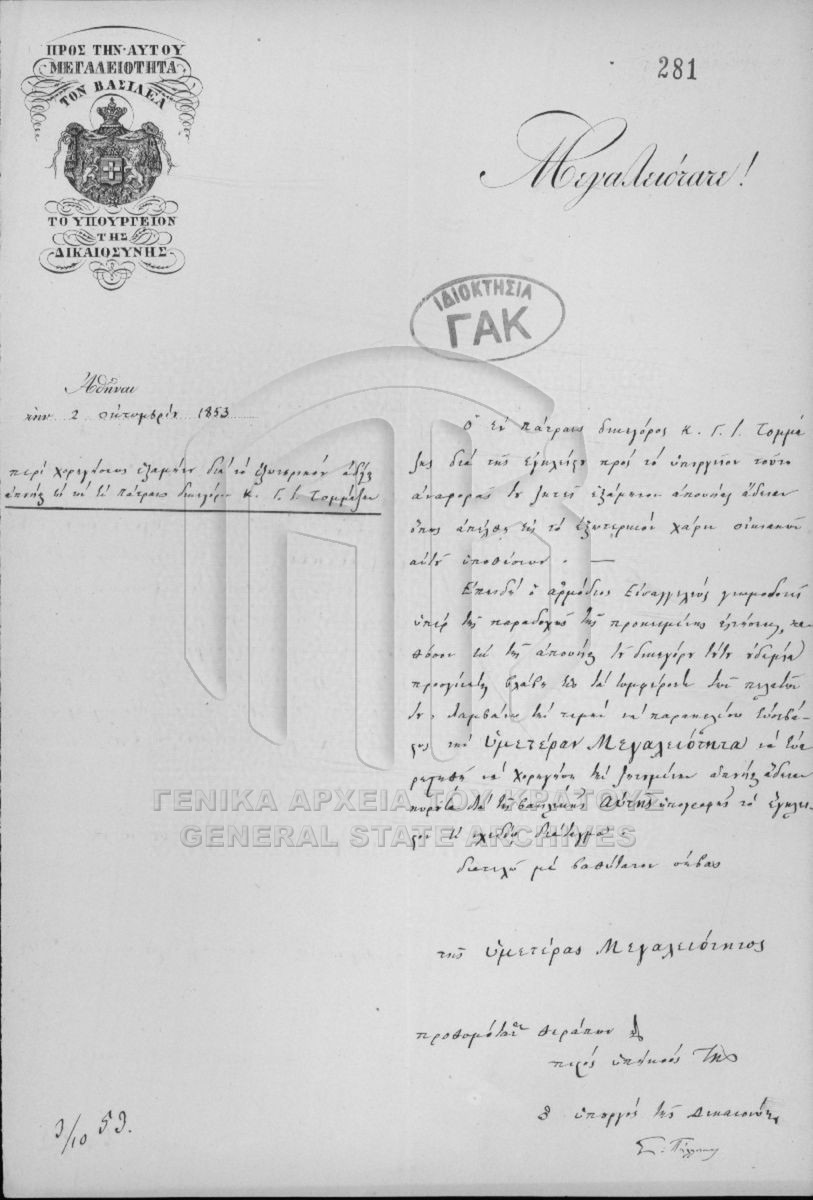 ΠΡΟΣ ΤΗΝ ΑΥΤΟΥ
ΜΕΓΑΛΕΙΟΤΗΤΑ
ΤΟΝ ΒΑΣΙΛΕΑ
ΤΟ ΥΠΟΥΡΓΕΙΟΝ
ΤΗΣ
ΔΙΚΑΙΟΣΥΝΗΣ
281
Μεγαλειότατε!
ΙΔΙΟΚΤΗΣΙΑ
ΓΑΚ
Ἀθῆναι
τὴν 2 Ὀκτωμβρίου 1853
περὶ χορηγήσεως ἑξαμήνου διὰ τὸ ἐξωτερικὸν ἀδείας
ἀπουσίας εἰς τὸν ἐν Πάτραις δικηγόρον Κ. Γ. Ι. Τομμάζην
Ὁ ἐν Πάτραις δικηγόρος Κ. Γ. Ι. Τομμά
ζης διὰ τῆς ἐγκλείστου πρὸς τὸ ὑπουργεῖον τοῦτο
ἀναφορᾶς του ζητεῖ ἑξάμηνον ἀπουσίας ἄδειαν
ὅπως ἀπέλθῃ εἰς τὸ ἐξωτερικὸν χάριν οἰκιακῶν
αὐτοῦ ὑποθέσεων. —
Ἐπειδὴ ὁ ἁρμόδιος Εἰσαγγελεὺς γνωμοδοτεῖ
ὑπὲρ τῆς παραδοχῆς τῆς προκειμένης αἰτήσεως, κα-
θόσον ἐκ τῆς ἀπουσίας τοῦ δικηγόρου τούτου οὐδεμία
προσγίνεται βλάβη εἰς τὰ συμφέροντα τῶν πελατῶν
του, λαμβάνω τὴν τιμὴν νὰ παρακαλέσω εὐσεβά-
στως τὴν Ὑμετέραν Μεγαλειότητα νὰ εὐα-
ρεστηθῇ νὰ χορηγήσῃ τὴν ζητουμένην ἀπουσίας ἄδειαν
κυροῦσα διὰ τῆς βασιλικῆς Αὑτῆς ὑπογραφῆς τὸ ἐγκλει-
στον ἐν σχεδίῳ διάταγμα.
Διατελῶ μὲ βαθύτατον σέβας
τῆς Ὑμετέρας Μεγαλειότητος
προθυμότατος θεράπων
πιστὸς ὑπήκοός Της
Ὁ ὑπουργὸς τῆς Δικαιοσύνης
Σ. Πήλικας
3/10 53.
ΓΕΝΙΚΑ ΑΡΧΕΙΑ ΤΟΥ ΚΡΑΤΟΥΣ
GENERAL STATE ARCHIVES